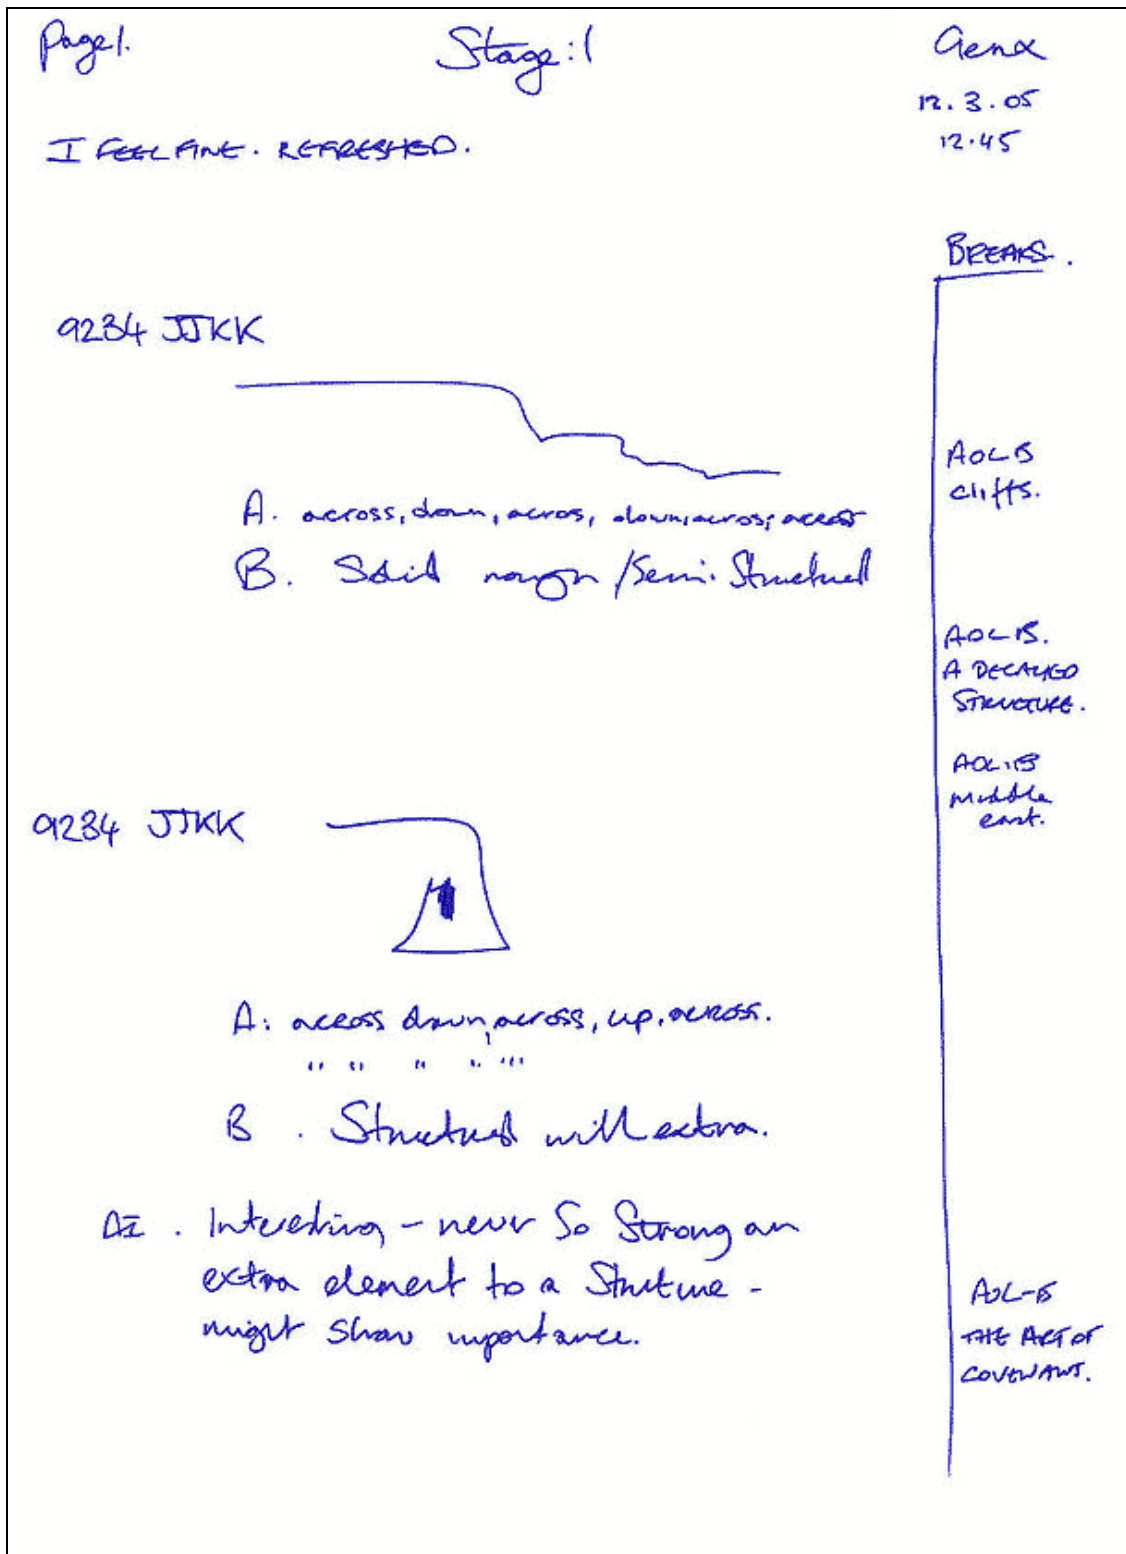 Page 1.
Stage: 1
Genα
12.3.05
12.45
I FEEL FINE. REFRESHED.
BREAKS.
9234 JJKK
A. across, down, acros, down, acros, across
B. Solid rough / Semi. Structural
AOL B
cliffs.
AOL B.
A DECAYED
STRUCTURE.
AOL B
middle
east.
9234 JJKK
A: across down, across, up, across.
" " " " " "
B. Structural will extra.
AI. Interesting - never So Strong an
extra element to a Structure -
might show importance.
AOL-B
THE ARC OF
COVENANT.